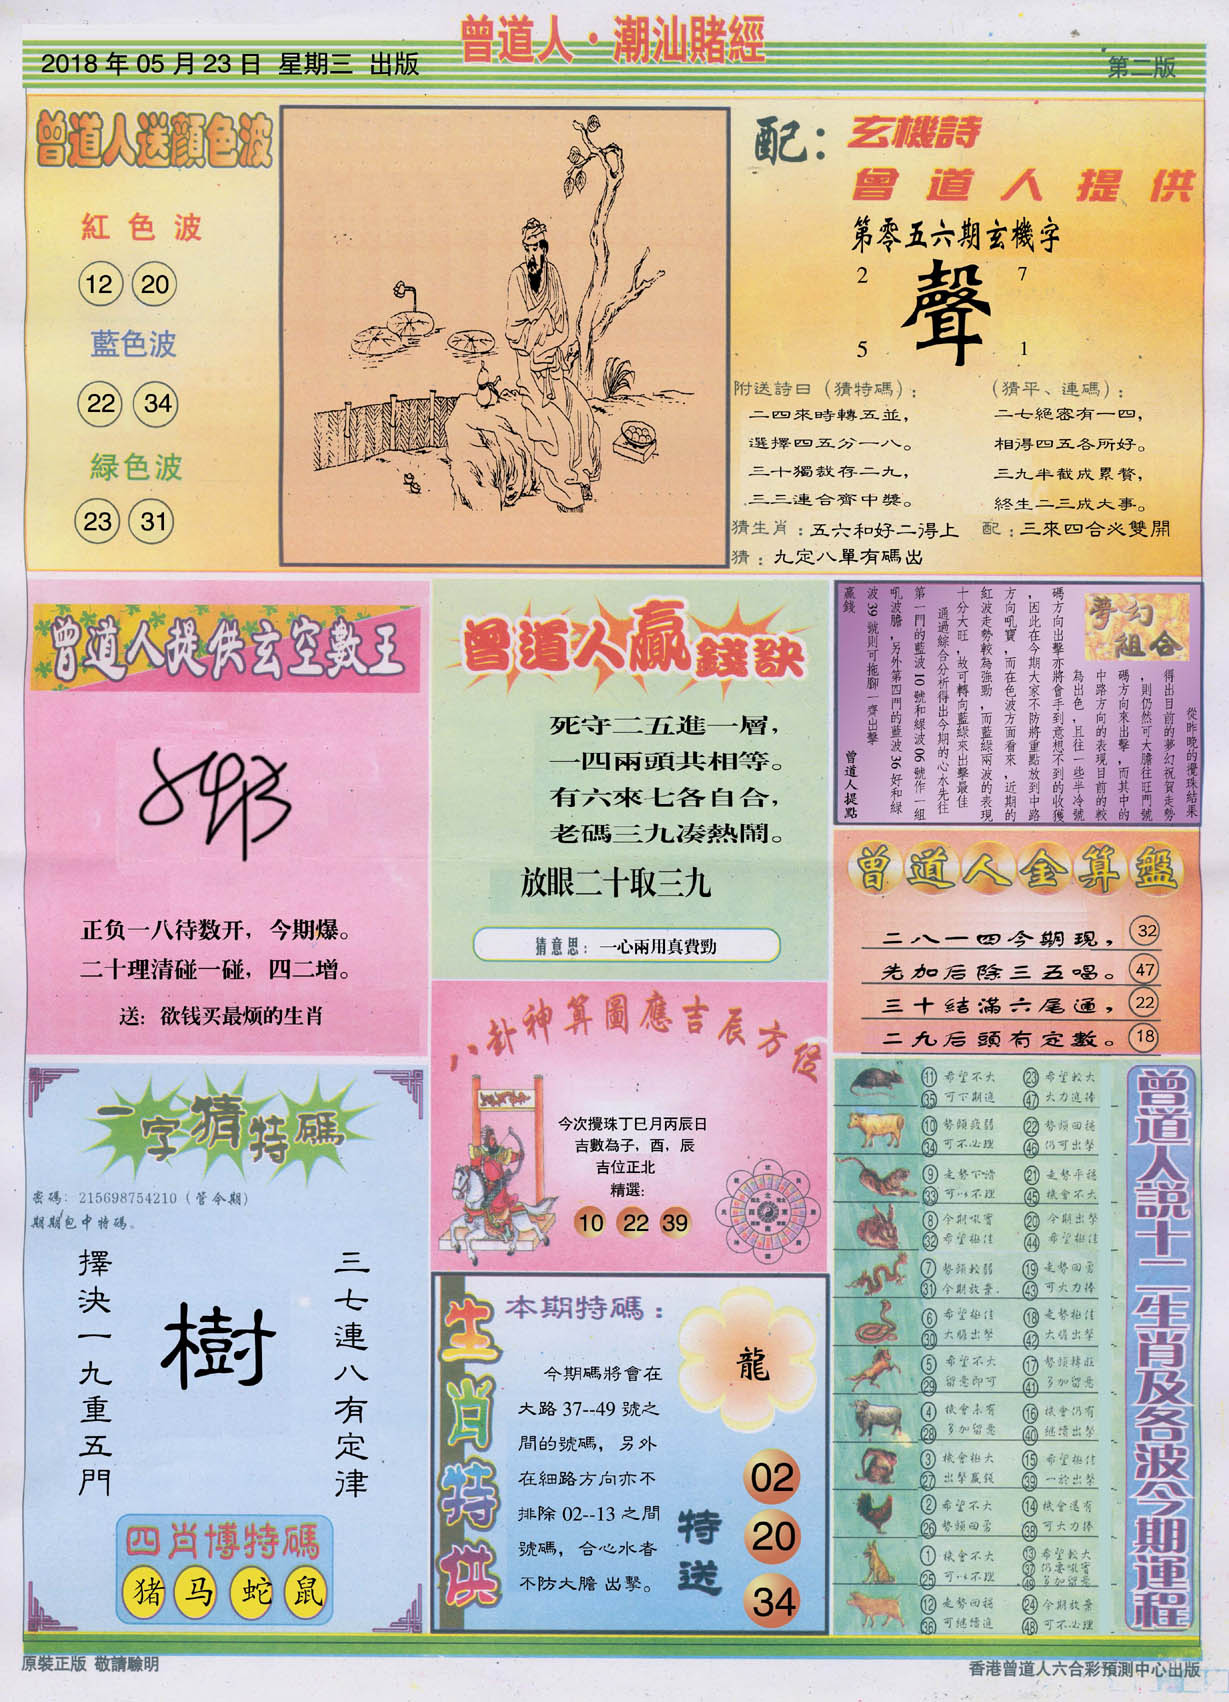 曾道人·潮汕賭經
2018 年 05 月 23 日 星期三 出版
第二版
曾道人送顏色波
紅色波
12 20
藍色波
22 34
緑色波
23 31
配：玄機詩
曾道人提供
第零五六期玄機字
2 7
聲
5 1
附送詩曰（猜特碼）：
二四來時轉五並，
選擇四五分一八。
三十獨裁存二九，
三三連合齊中獎。
（猜平、連碼）：
二七絕密有一四，
相得四五各所好。
三九半截成累贅，
終生二三成大事。
猜生肖：五六和好二得上
配：三來四合必雙開
猜：九定八單有碼出
曾道人提供玄空數王
正负一八待数开，今期爆。
二十理清碰一碰，四二增。
送：欲钱买最烦的生肖
曾道人贏錢訣
死守二五進一層，
一四兩頭共相等。
有六來七各自合，
老碼三九凑熱鬧。
放眼二十取三九
猜意思：一心兩用真費勁
夢幻
組合
從昨晚的攪珠結果
得出目前的夢幻祝賀走勢
，則仍然可大膽往旺門號
碼方向來出擊，而其中的
中路方向的表現目前的較
為出色，且往一些半冷號
碼方向出擊亦將會手到意想不到的收獲
，因此在今期大家不防將重點放到中路
方向吼寶，而在色波方面看來，近期的
紅波走勢較為強勁，而藍綠兩波的表現
十分大旺，故可轉向藍綠來出擊最佳
通過綜合分析得出今期的心水先往
第一門的藍波 10 號和緑波 06 號作一組
吼波膽，另外第四門的藍波 36 好和緑
波 39 號則可拖腳一齊出擊
贏錢
曾道人提點
曾道人金算盤
二八一四今期現， 32
先加后除三五唱。 47
三十結滿六尾通， 22
二九后頭有定數。 18
八卦神算圖應吉辰方位
今次攪珠丁巳月丙辰日
吉數為子，酉，辰
吉位正北
精選：
10 22 39
一字猜特碼
密碼：215698754210（管今期）
期期包中特碼。
三七連八有定律
樹
擇決一九重五門
四肖博特碼
猪 马 蛇 鼠
生肖特供
本期特碼：
龍
今期碼將會在
大路 37--49 號之
間的號碼，另外
在細路方向亦不
排除 02--13 之間
號碼，合心水者
不防大膽 出擊。
特送
02
20
34
曾道人説十二生肖及各波今期運程
11 希望不大 23 希望較大
35 可下期進 47 大力進捧
10 勢頭疲弱 22 勢頭回穩
34 可不必理 46 仍可出擊
9 走勢下滑 21 走勢平穩
33 可以不理 45 機會不大
8 今期吸寶 20 今期出擊
32 希望極佳 44 希望極佳
7 勢頭較弱 19 走勢回勇
31 今期放棄. 43 可大力捧
6 希望極佳 18 走勢極佳
30 大膽出擊 42 大膽出擊
5 希望不大 17 勢頭轉旺
29 留意即可 41 多加留意
4 機會未有 16 機會仍有
28 多加留意 40 繼續出擊
3 機會極大 15 希望極佳
27 出擊贏錢 39 一於出擊
2 希望不大 14 機會還有
26 勢頭回勇 38 可大力捧
1 機會不大 13 希望較大
25 可以不理 37 仍要吸寶
49 多加留意
12 走勢回穩 24 今期放棄
36 可繼續進 48 可不必理
原裝正版 敬請驗明
香港曾道人六合彩預測中心出版